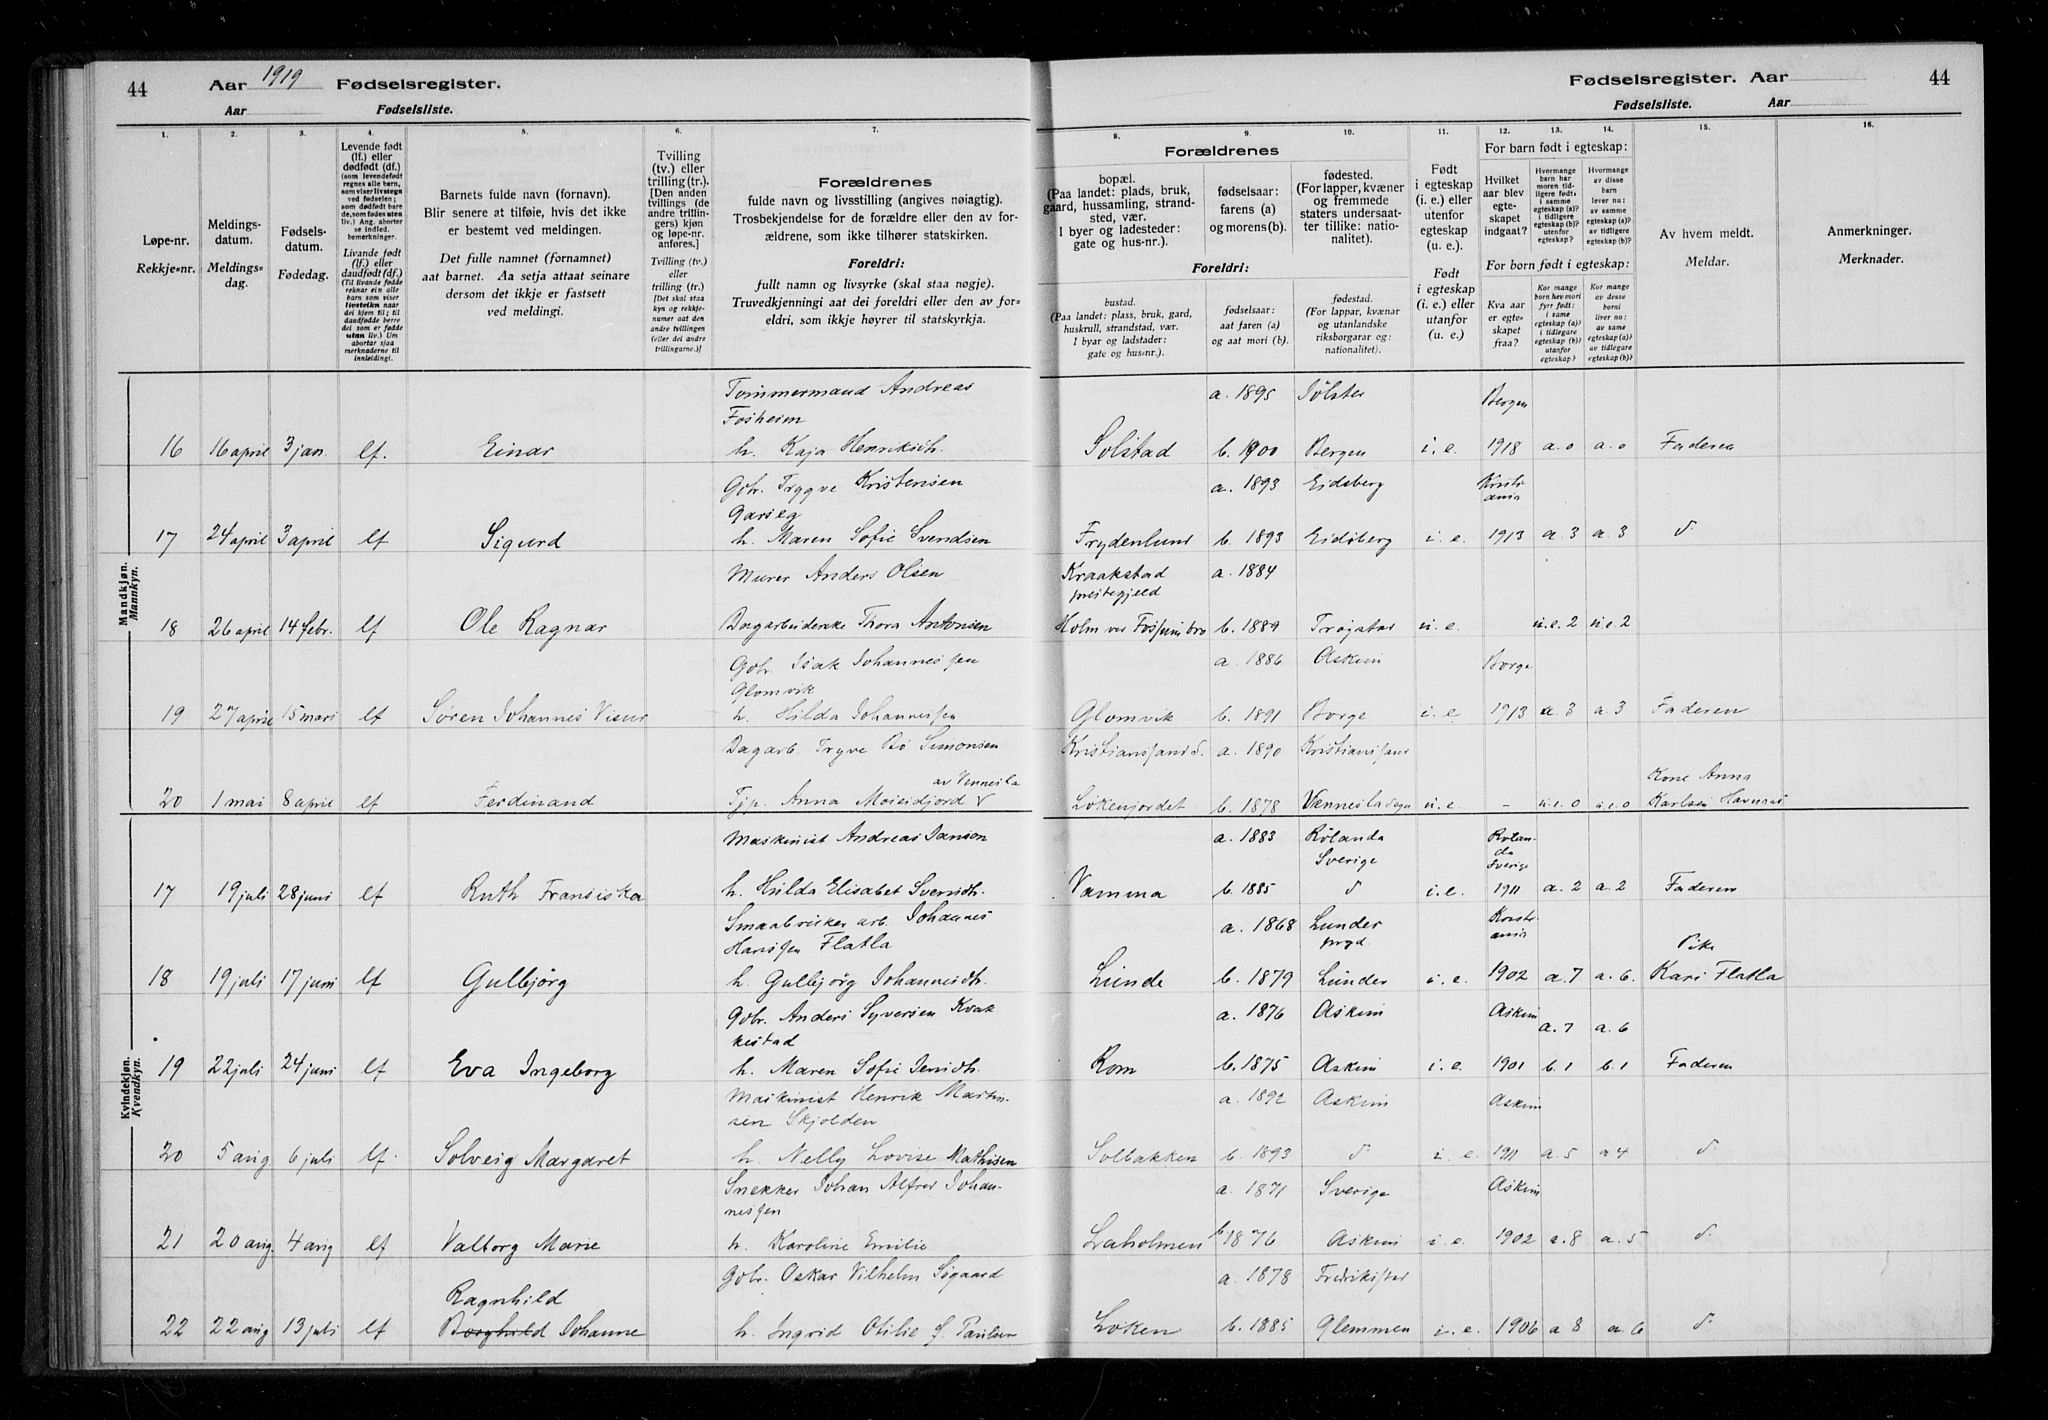 44 Aar 1919 Fødselsregister.
Aar Fødselsliste.
Fødselsregister. Aar 44
Fødselsliste. Aar
1. 2. 3. 4. 5. 6. 7. 8. 9. 10. 11. 12. 13. 14. 15. 16.
Løpe-nr.
Rekkje-nr.
Meldings-
datum.
Meldings-
dag.
Fødsels-
datum.
Fødedag.
Levende født
(lf.) eller
dødfødt (df.)
(som levendefødt
regnes alle barn,
som viser livstegn
ved fødselen;
som dødfødt bare
de, som fødes uten
liv.) Ang. aborter
se indled.
bemerkninger.
Livande født
(lf.) eller
daudfødt (df.)
(Til livande fødde
reknar ein alle
barn som viser
livsteikn naar
dei kjem til; til
daudfødde berre
dei som er fødde
utan liv.) Um
abortar sjaa
merknaderne til
innleidingi.
Barnets fulde navn (fornavn).
Blir senere at tilføie, hvis det ikke
er bestemt ved meldingen.
Det fulle namnet (fornamnet)
aat barnet. Aa setja attaat seinare
dersom det ikkje er fastsett
ved meldingi.
Tvilling
(tv.) eller
trilling (tr.).
[Den anden
tvillings (de
andre trillin-
gers) kjøn
og løpe-nr.
anføres.]
Tvilling (tv.)
eller
trilling (tr.)
[Det skal staa
kyn og rekkje-
numer aat den
andre tvillingen
(eller dei andre
trillingarne.)]
Forældrenes
fulde navn og livsstilling (angives nøiagtig).
Trosbekjendelse for de forældre eller den av for-
ældrene, som ikke tilhører statskirken.
Foreldri:
fullt namn og livsyrke (skal staa nøgje).
Truvedkjenningi aat dei foreldri eller den av for-
eldri, som ikkje høyrer til statskyrkja.
Forældrenes
bopæl.
(Paa landet: plads, bruk,
gaard, hussamling, strand-
sted, vær.
I byer og ladesteder:
gate og hus-nr.).
fødselsaar:
farens (a)
og morens(b).
fødested.
(For lapper, kvæner
og fremmede
staters undersaat-
ter tillike: natio-
nalitet).
Foreldri:
bustad.
(Paa landet: plass, bruk, gard,
huskrull, strandstad, vær.
I byar og ladstader:
gate og hus-nr.).
fødselsaar:
aat faren (a)
og aat mori (b).
fødestad.
(For lappar, kvænar
og utanlandske
riksborgarar og:
nationalitet).
Født
i egteskap
(i. e.) eller
utenfor
egteskap
(u. e.).
Født
i egteskap
(i. e.) eller
utanfor
(u. e.).
For barn født i egteskap:
Hvilket
aar blev
egte-
skapet
indgaat?
Hvormange
barn har
moren tid-
ligere født,
i samme
egteskap (a)?
i tidligere
egteskap (b)?
utenfor
egteskap?
Hvormange
av disse
barn
lever nu:
av samme
egteskap (a)?
av tidligere
egteskap (b)?
For born født i egteskap:
Kva aar
er egte-
skapet
fraa?
Kor mange
born hev mori
fyrr født:
i same
egteskap (a)?
i tidlegare
egteskap (b)?
utanfor
egteskap?
Kor mange
av desse
borni
liver no:
av same
egteskap (a)?
av tidlegare
egteskap (b)?
Av hvem meldt.
Meldar.
Anmerkninger.
Merknader.
Mandkjøn.
Mannkyn.
Tømmermand Andreas a. 1895 Jølster Bergen
Fosheim
16 16 april 3 jan. lf. Einar h. Kaja Henriksdt. Solstad b. 1900 Bergen i. e. 1918 a. 0 a. 0 Faderen
Gbr. Trygve Kristensen a. 1893 Eidsberg Kristi
ania
17 24 april 3 april lf Sigurd h. Maren Sofie Svendsen Frydenlund b. 1893 Eidsberg i. e. 1913 a. 3 a. 3 d.
Murer Anders Olsen Kraakstad a. 1884
prestegjeld
18 26 april 14 febr. lf Ole Ragnar Dagarbeiderske Thora Antonsen Holm ved Fossum bro b. 1889 Trøgstad u. e. u. e. 2 u. e. 2
Gbr. Isak Johannessen a. 1886 Askim Borge
Glomvik
19 27 april 15 mars lf Søren Johannes h. Hilda Johannessen Glomvik b. 1891 Borge i. e. 1913 a. 3 a. 3 Faderen
Dagarb. Tryve Bø Simonsen Kristianssand S. a. 1890 Kristianssand
av Vennesla Kone Anna
20 1 mai 8 april lf Ferdinand Tjp. Anna Moseidjord Løkenjordet b. 1878 Vennesla sogn u. e. - u. e. 0 u. e. 0 Karlsen Havnaas
Kvindekjøn.
Kvendkyn.
Maskinist Andreas Janson a. 1883 Rølanda
Sverige Rølan-
da
Sverige
17 19 juli 28 juni lf Ruth Fransiska h. Hilda Elisabet Svendt. Vamma b. 1885 d i. e. 1911 a. 2 a. 2 Faderen
Smaabruker arb. Johannes a. 1868 Lunder
prgd. Kristi-
ania
Hanssen Flatla Pike
18 19 juli 17 juni lf Gulbjørg h. Gulbjørg Johannesdt. Lunde b. 1879 Lunder i. e. 1902 a. 7 a. 6. Kari Flatla
Gbr. Anders Syversen Kvak a. 1876 Askim Askim a. 7 a. 6
kestad
19 22 juli 24 juni lf Eva Ingeborg h. Maren Sofie Jensdt. Rom b. 1875 Askim i. e. 1901 b. 1 b. 1 Faderen
Maskinist Henrik Martin- a. 1892 Askim Askim
sen Skjolden
20 5 aug 6 juli lf. Solveig Margaret h. Nelly Lovise Mathisen Solbakken b. 1893 d i. e. 1911 a. 5 a 4 d.
Snekker Johan Alfred Johan- a. 1871 Sverige Askim
nessen
21 20 aug. 4 aug lf Valborg Marie h. Karoline Emilie Laholmen b 1876 Askim i. e. 1902 a. 8 a. 5 d.
Gbr. Oskar Vilhelm Søgaard a. 1878 Fredrikstad
Ragnhild
22 22 aug 13 juli lf Borghild Johanne h. Ingrid Otilie S. Paulsen Løken b. 1885 Glemmen i. e. 1906 a 8 a. 6 d.